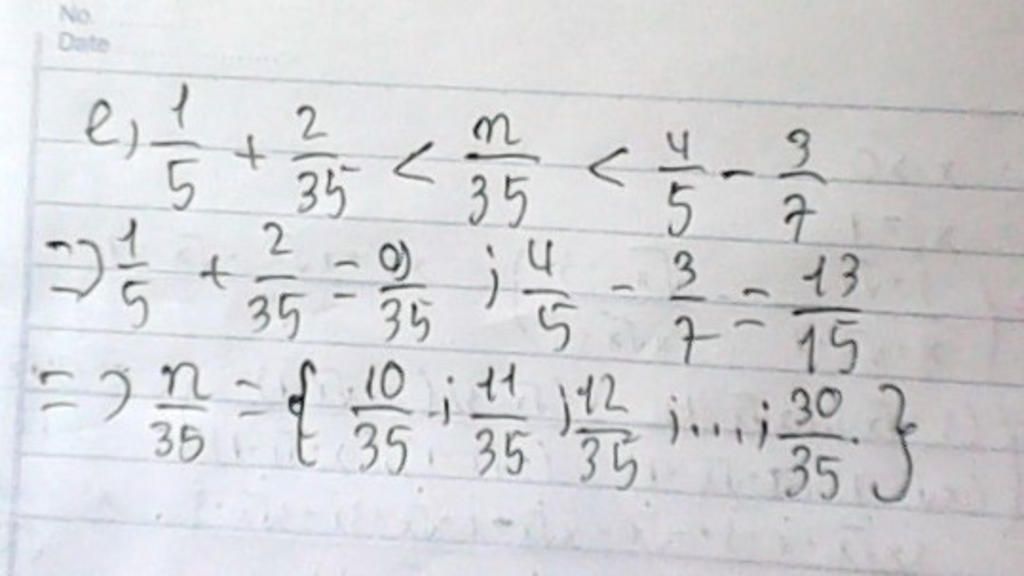 No.
Date
e, 1/5 + 2/35 < n/35 < 4/5 - 3/7
=> 1/5 + 2/35 = 9/35 ; 4/5 - 3/7 = 13/15
=> n/35 = { 10/35 ; 11/35 ; 12/35 ; ... ; 30/35 . }